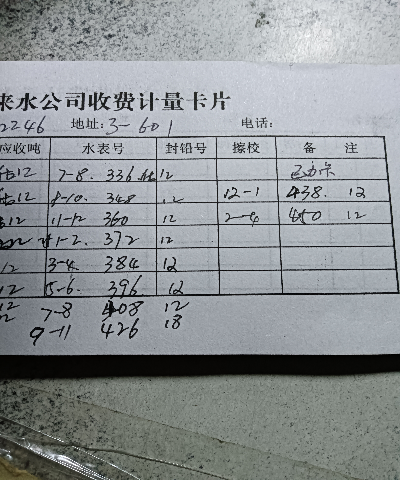 来水公司收费计量卡片
2246 地址: 3-601 电话:
应收吨 水表号 封铅号 擦校 备 注
12 7-8. 336 12
12 8-10. 348 12 12-1 438. 12
12 11-12 360 12 2-4 450 12
1-2. 372 12
12 3-4. 384 12
12 5-6. 396 12
12 7-8 408 12
9-11 426 18